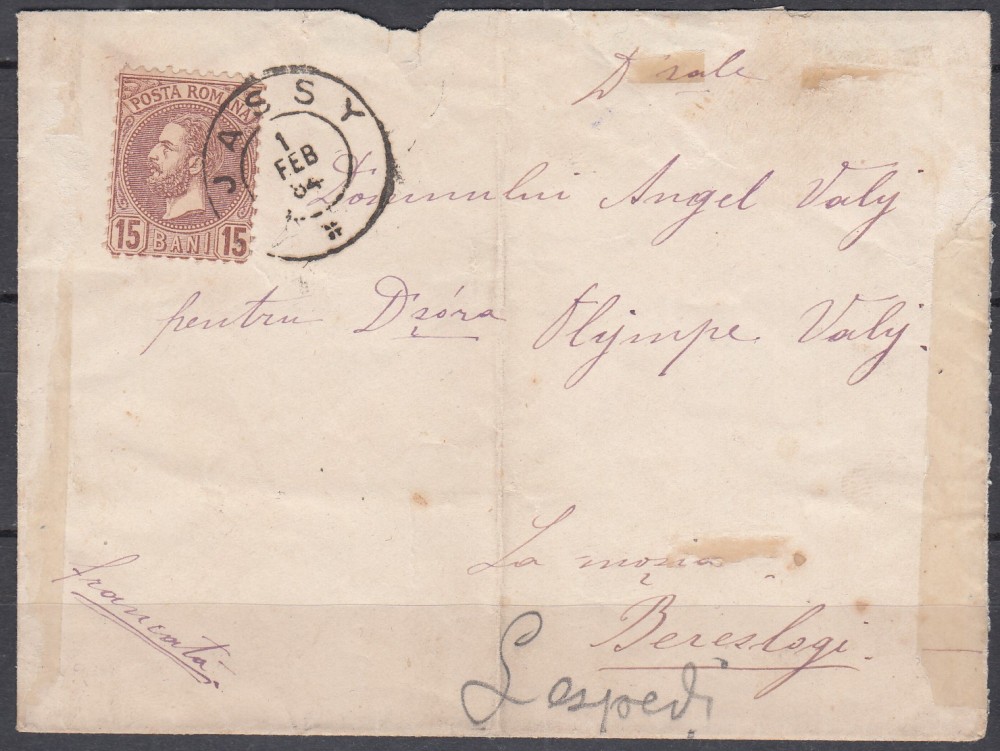 POSTA ROMANA
15 BANI 15
JASSY
1
FEB
84
D sale
Domnului Angel Valy
pentru D'șóra Olympe Valy.
La moșia
Bereslogi.
francată
Lespedi